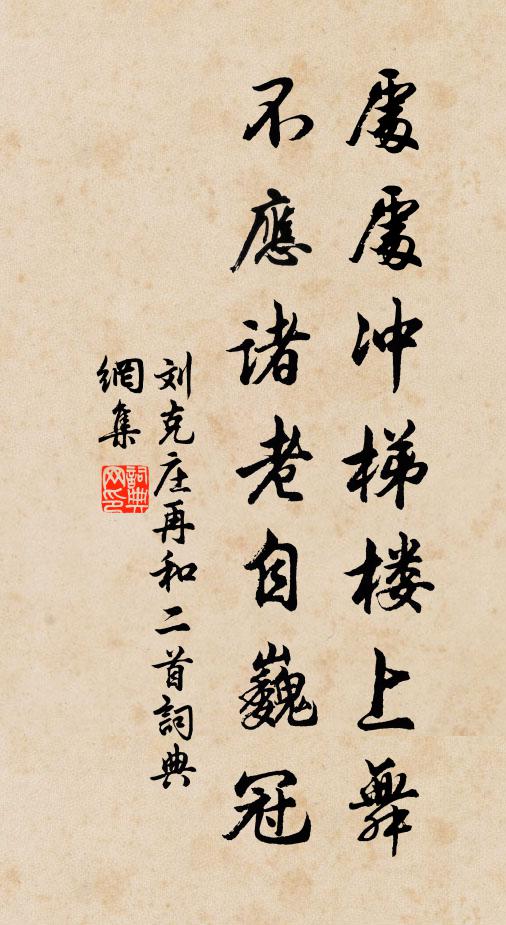 處處冲梯楼上舞
不應诸老自巍冠
刘克庄再和二首詞典
網集
詞典
网印